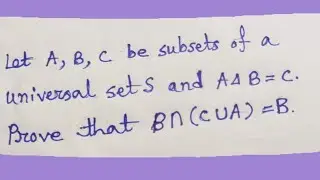 Let A, B, C be subsets of a
universal set S and A Δ B = C.
Prove that B∩(C∪A) = B.